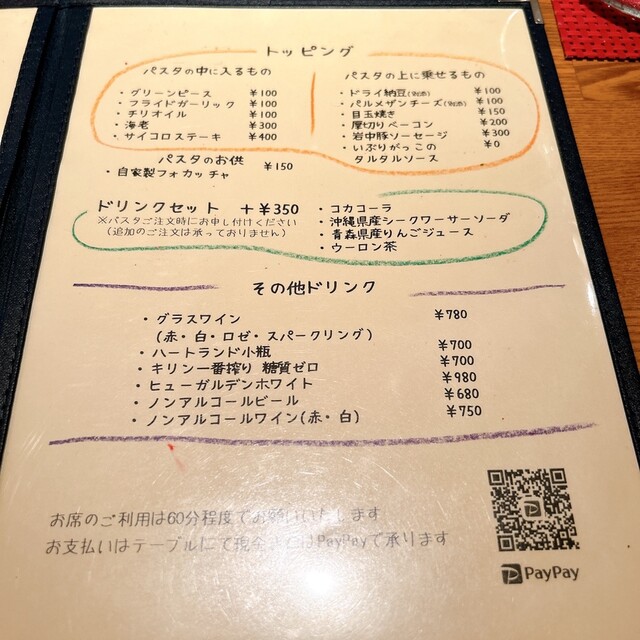 トッピング
パスタの中に入るもの
・グリーンピース ¥100
・フライドガーリック ¥100
・チリオイル ¥100
・海老 ¥300
・サイコロステーキ ¥400
パスタの上に乗せるもの
・ドライ納豆 ¥100
・パルメザンチーズ ¥100
・目玉焼き ¥150
・厚切りベーコン ¥200
・岩中豚ソーセージ ¥300
・いぶりがっこの ¥0
タルタルソース
パスタのお供
・自家製フォカッチャ ¥150
ドリンクセット +¥350
※パスタご注文時にお申し付けください
(追加のご注文は承っておりません)
・コカコーラ
・沖縄県産シークワーサーソーダ
・青森県産りんごジュース
・ウーロン茶
その他ドリンク
・グラスワイン ¥780
(赤・白・ロゼ・スパークリング)
・ハートランド小瓶 ¥700
・キリン一番搾り 糖質ゼロ ¥700
・ヒューガルデンホワイト ¥980
・ノンアルコールビール ¥680
・ノンアルコールワイン(赤・白) ¥750
お席のご利用は60分程度でお願いいたします
お支払いはテーブルにて現金またはPayPayで承ります
PayPay